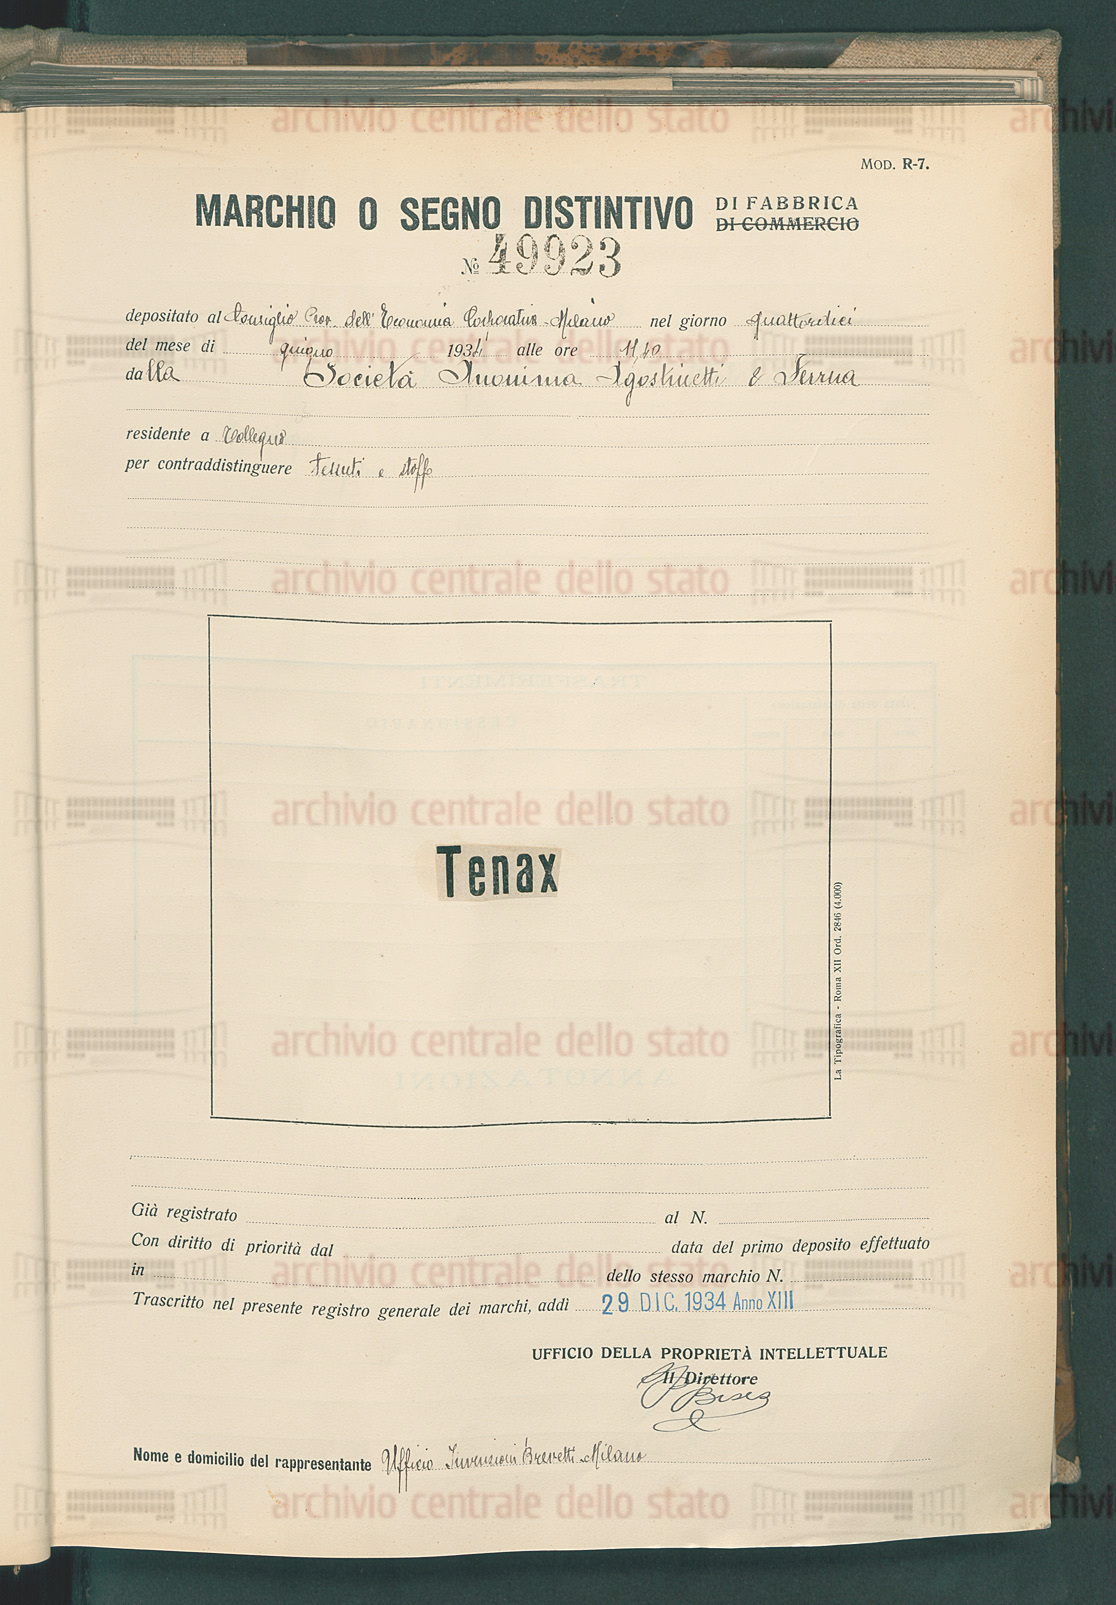 MOD. R-7.
MARCHIO O SEGNO DISTINTIVO DI FABBRICA
DI COMMERCIO
№ 49923
depositato al Consiglio Prov. dell'Economia Corporativa - Milano nel giorno quattordici
del mese di giugno 1934 alle ore 11,40
dalla Società Anonima Agostinetti & Ferrua
residente a Collegno
per contraddistinguere tessuti e stoffe
Tenax
La Tipografica - Roma XII Ord. 2846 (4.000)
Già registrato al N.
Con diritto di priorità dal data del primo deposito effettuato
in dello stesso marchio N.
Trascritto nel presente registro generale dei marchi, addì 29 DIC. 1934 Anno XIII
UFFICIO DELLA PROPRIETÀ INTELLETTUALE
Il Direttore
Nome e domicilio del rappresentante Ufficio Invenzioni Brevetti - Milano
archivio centrale dello stato